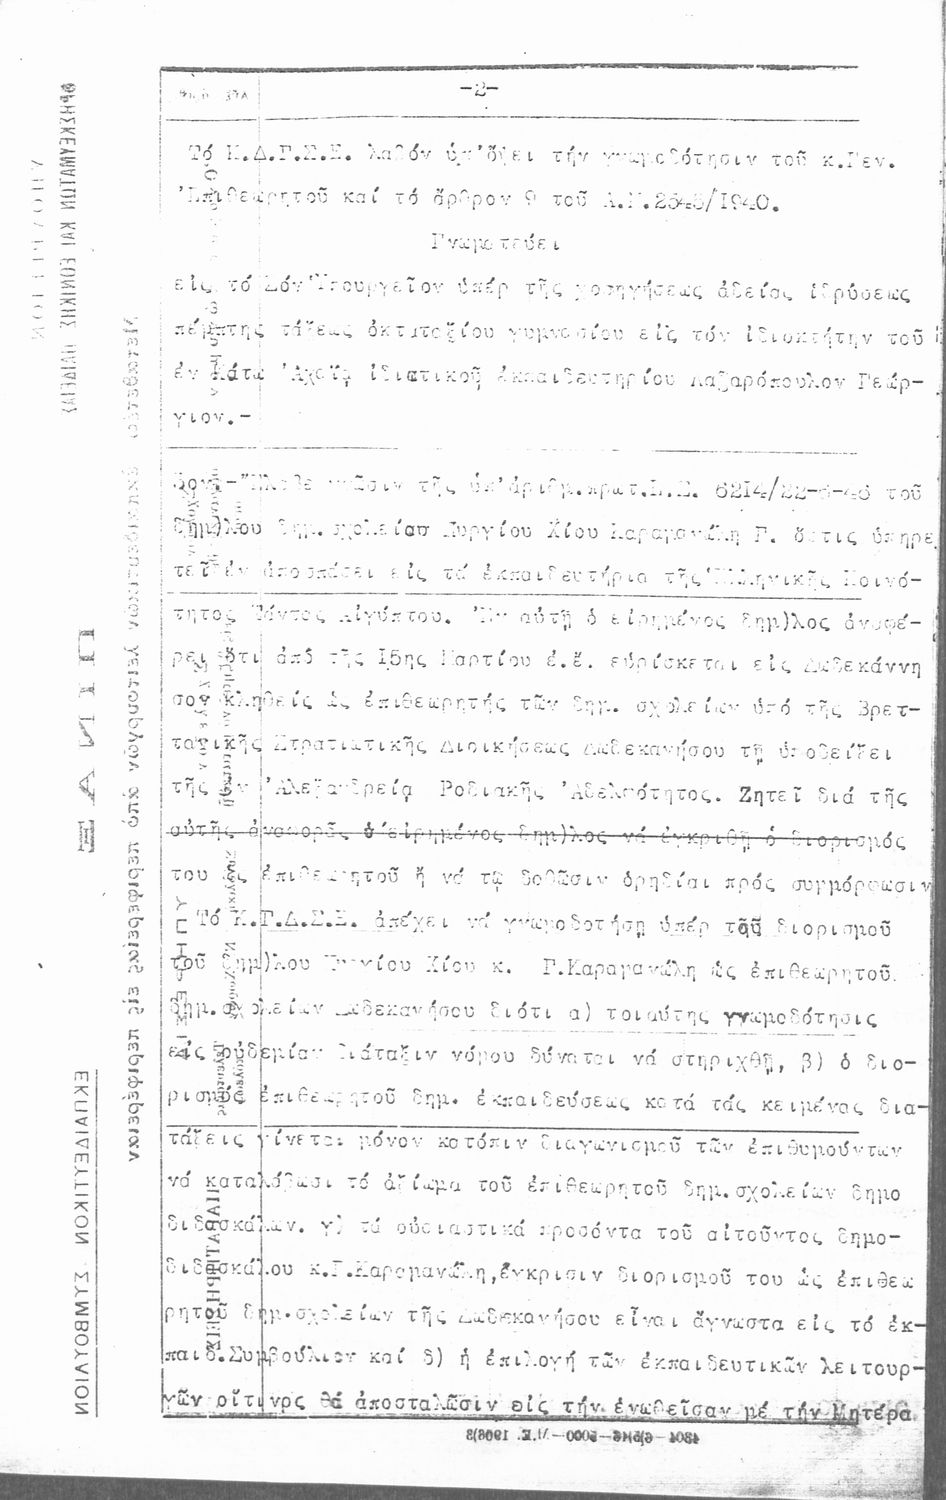 -2-
Τό Κ.Δ.Γ.Σ.Ε. λαβόν ὑπ'ὄψει τήν γνωμοδότησιν τοῦ κ.Γεν.
'Επιθεωρητοῦ καί τό ἄρθρον 9 τοῦ Α.Ν.2545/1940.
Γνωμοτεύει
εἰς τό Σόν Ὑπουργεῖον ὑπέρ τῆς χορηγήσεως ἀδείας ἱδρύσεως
πέμπτης τάξεως ὀκταταξίου γυμνασίου εἰς τόν ἰδιοκτήτην τοῦ
ἐν Κάτω 'Αχαΐᾳ ἰδιωτικοῦ ἐκπαιδευτηρίου Λαζαρόπουλον Γεώρ-
γιον.-
3ον.-"Ελαβε γνῶσιν τῆς ὑπ'ἀριθμ.πρωτ.Ε.Σ. 6214/22-6-46 τοῦ
δημ)λου δημ.σχολείου Πυργίου Χίου Καραμανώλη Γ. ὅστις ὑπηρε
τεῖ ἐν ἀποσπάσει εἰς τά ἐκπαιδευτήρια τῆς Ἑλληνικῆς Κοινό-
τητος Τάντας Αἰγύπτου. 'Εν αὐτῇ ὁ εἰρημένος δημ)λος ἀναφέ-
ρει ὅτι ἀπό τῆς 15ης Μαρτίου ἐ.ἔ. εὑρίσκεται εἰς Δωδεκάννη
σον κληθείς ὡς ἐπιθεωρητής τῶν δημ. σχολείων ὑπό τῆς Βρετ-
τανικῆς Στρατιωτικῆς Διοικήσεως Δωδεκανήσου τῇ ὑποδείξει
τῆς ἐν 'Αλεξανδρείᾳ Ροδιακῆς 'Αδελφότητος. Ζητεῖ διά τῆς
αὐτῆς ἀναφορᾶς ὁ εἰρημένος δημ)λος νά ἐγκριθῇ ὁ διορισμός
του ὡς ἐπιθεωρητοῦ ἤ νά τῷ δοθῶσιν ὁδηγίαι πρός συμμόρφωσιν
Τό Κ.Γ.Δ.Σ.Ε. ἀπέχει νά γνωμοδοτήσῃ ὑπέρ τοῦ διορισμοῦ
τοῦ δημ)λου Πυργίου Χίου κ. Γ.Καραμανώλη ὡς ἐπιθεωρητοῦ
δημ.σχολείων Δωδεκανήσου διότι α) τοιαύτης γνωμοδότησις
εἰς οὐδεμίαν διάταξιν νόμου δύναται νά στηριχθῇ, β) ὁ διο-
ρισμός ἐπιθεωρητοῦ δημ. ἐκπαιδεύσεως κατά τάς κειμένας δια-
τάξεις γίνεται μόνον κατόπιν διαγωνισμοῦ τῶν ἐπιθυμούντων
νά καταλάβωσι τό ἀξίωμα τοῦ ἐπιθεωρητοῦ δημ.σχολείων δημο
διδασκάλων. γ) τά οὐσιαστικά προσόντα τοῦ αἰτοῦντος δημο-
διδασκάλου κ.Γ.Καραμανώλη,ἔγκρισιν διορισμοῦ του ὡς ἐπιθεω
ρητοῦ δημ.σχολείων τῆς Δωδεκανήσου εἶναι ἄγνωστα εἰς τό ἐκ-
παιδ.Συμβούλιον καί δ) ἡ ἐπιλογή τῶν ἐκπαιδευτικῶν λειτουρ-
γῶν οἵτινες θά ἀποσταλῶσιν εἰς τήν ἑνωθεῖσαν μέ τήν Μητέρα
ΘΡΗΣΚΕΥΜΑΤΩΝ ΚΑΙ ΕΘΝΙΚΗΣ ΠΑΙΔΕΙΑΣ
ΠΙΝΑΞ
ΕΚΠΑΙΔΕΥΤΙΚΟΝ ΣΥΜΒΟΥΛΙΟΝ
ΠΑΡΑΤΗΡΗΣΕΙΣ